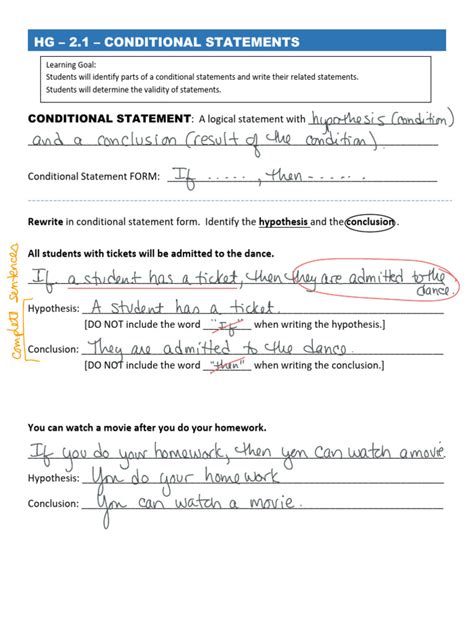 HG – 2.1 – CONDITIONAL STATEMENTS
Learning Goal:
Students will identify parts of a conditional statements and write their related statements.
Students will determine the validity of statements.
CONDITIONAL STATEMENT: A logical statement with hypothesis (condition)
and a conclusion (result of the condition).
Conditional Statement FORM: If ....., then -.....
Rewrite in conditional statement form. Identify the hypothesis and the conclusion.
All students with tickets will be admitted to the dance.
If a student has a ticket, then they are admitted to the
dance.
complete sentences
Hypothesis: A student has a ticket.
[DO NOT include the word "If" when writing the hypothesis.]
Conclusion: They are admitted to the dance.
[DO NOT include the word "then" when writing the conclusion.]
You can watch a movie after you do your homework.
If you do your homework, then you can watch a movie.
Hypothesis: You do your homework
Conclusion: You can watch a movie.